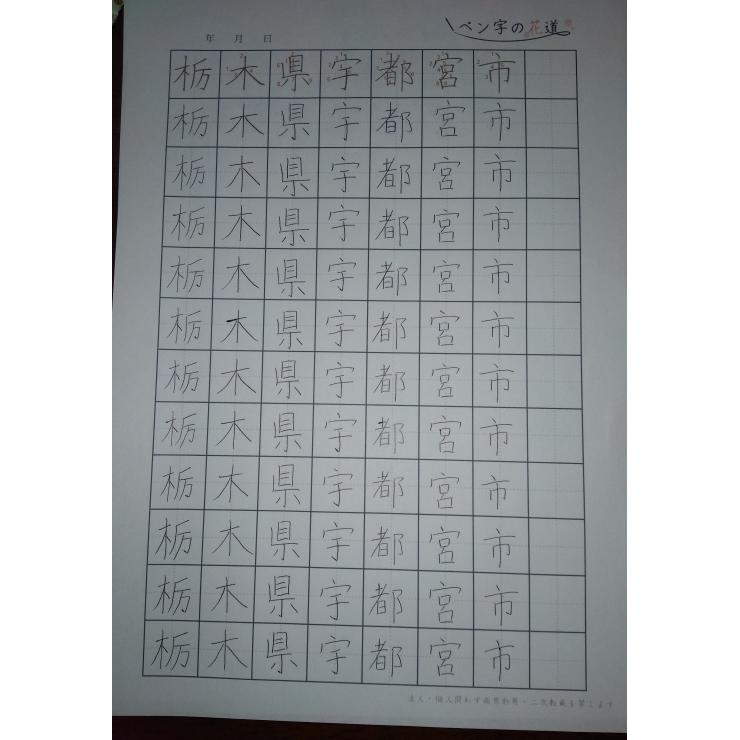 ペン字の花道
年 月 日
栃木県宇都宮市
栃木県宇都宮市
栃木県宇都宮市
栃木県宇都宮市
栃木県宇都宮市
栃木県宇都宮市
栃木県宇都宮市
栃木県宇都宮市
栃木県宇都宮市
栃木県宇都宮市
栃木県宇都宮市
栃木県宇都宮市
法人・個人問わず商用利用・二次転載を禁じます